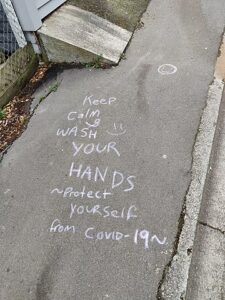 Keep
calm
WASH
YOUR
HANDS
~Protect
YOURSELF
from COVID-19~